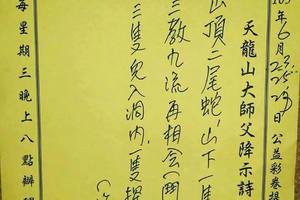 年6月
日公益彩卷提
天龍山大師父降示詩
山頂二尾蛇,山下一隻
三教九流再相會
三隻兔入洞內,一隻
每星期三晚上八點辦